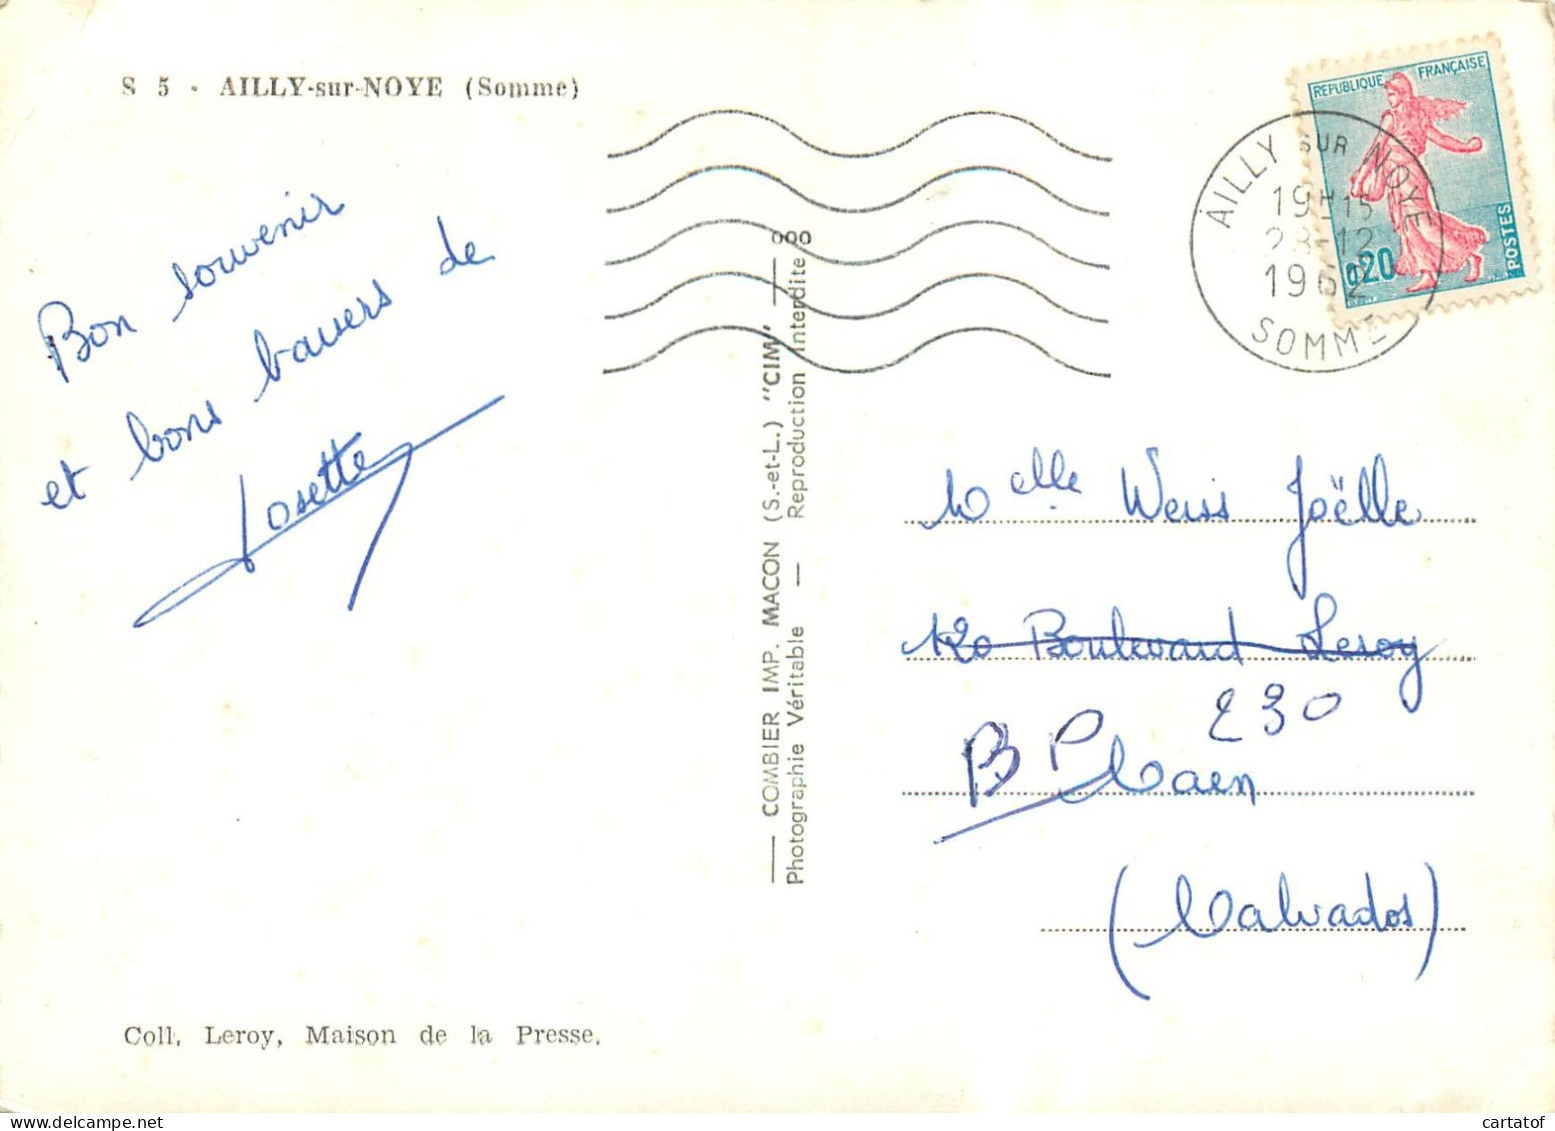 S 5 - AILLY-sur-NOYE (Somme)
Bon souvenir
et bons baisers de
Josette
Coll. Leroy, Maison de la Presse.
— COMBIER IMP. MACON (S.-et-L.) "CIM" —
Photographie Véritable — Reproduction Interdite
REPUBLIQUE FRANÇAISE
0,20
POSTES
AILLY SUR NOYE
19H15
28-12
1962
SOMME
Melle Weiss Joëlle
120 Boulevard Leroy
BP 230
Caen
(Calvados)
delcampe.net
cartatof